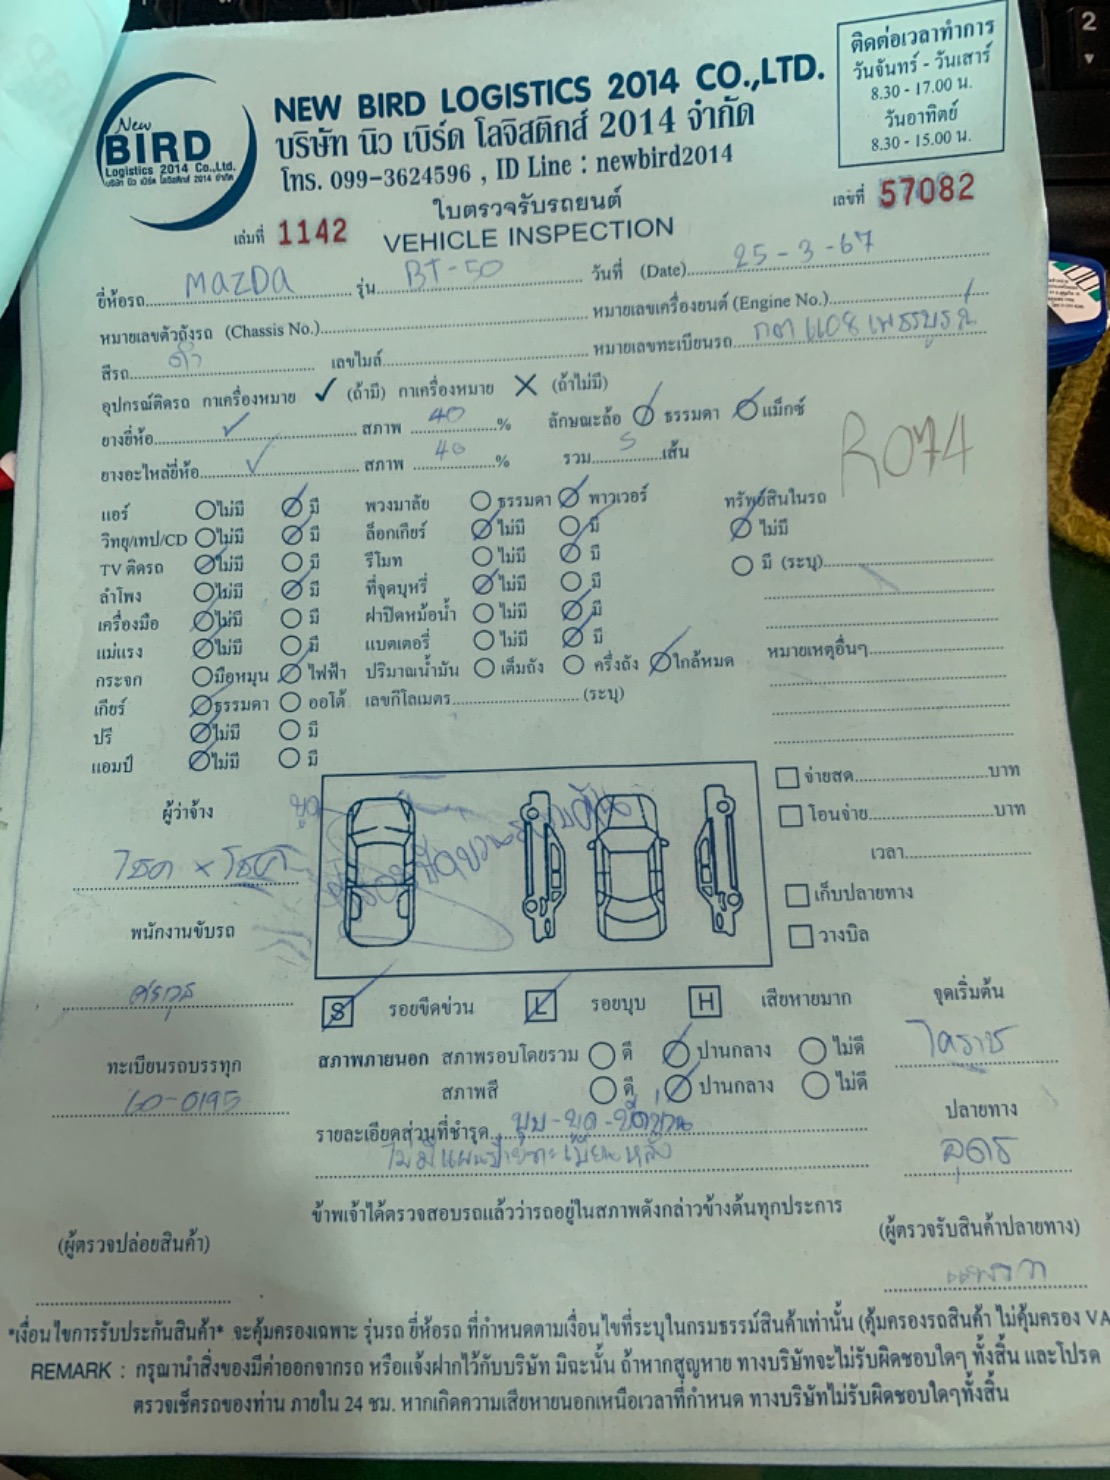 New
BIRD
Logistics 2014 Co.,Ltd.
บริษัท นิว เบิร์ด โลจิสติกส์ 2014 จำกัด
NEW BIRD LOGISTICS 2014 CO.,LTD.
บริษัท นิว เบิร์ด โลจิสติกส์ 2014 จำกัด
โทร. 099-3624596 , ID Line : newbird2014
ติดต่อเวลาทำการ
วันจันทร์ - วันเสาร์
8.30 - 17.00 น.
วันอาทิตย์
8.30 - 15.00 น.
ใบตรวจรับรถยนต์
VEHICLE INSPECTION
เล่มที่ 1142
เลขที่ 57082
ยี่ห้อรถ MAZDA รุ่น BT-50 วันที่ (Date) 25-3-67
หมายเลขตัวถังรถ (Chassis No.) หมายเลขเครื่องยนต์ (Engine No.)
สีรถ ดำ เลขไมล์ หมายเลขทะเบียนรถ กต 1108 เพชรบูรณ์
อุปกรณ์ติดรถ กาเครื่องหมาย ✓ (ถ้ามี) กาเครื่องหมาย ✕ (ถ้าไม่มี)
ยางยี่ห้อ ✓ สภาพ 40 % ลักษณะล้อ ธรรมดา แม็กซ์
ยางอะไหล่ยี่ห้อ ✓ สภาพ 40 % รวม 5 เส้น
R074
แอร์ ไม่มี มี พวงมาลัย ธรรมดา พาวเวอร์ ทรัพย์สินในรถ
วิทยุ/เทป/CD ไม่มี มี ล็อกเกียร์ ไม่มี มี ไม่มี
TV ติดรถ ไม่มี มี รีโมท ไม่มี มี มี (ระบุ)
ลำโพง ไม่มี มี ที่จุดบุหรี่ ไม่มี มี
เครื่องมือ ไม่มี มี ฝาปิดหม้อน้ำ ไม่มี มี
แม่แรง ไม่มี มี แบตเตอรี่ ไม่มี มี หมายเหตุอื่นๆ
กระจก มือหมุน ไฟฟ้า ปริมาณน้ำมัน เต็มถัง ครึ่งถัง ใกล้หมด
เกียร์ ธรรมดา ออโต้ เลขกิโลเมตร (ระบุ)
ปรี ไม่มี มี
แอมป์ ไม่มี มี
จ่ายสด บาท
โอนจ่าย บาท
เวลา
เก็บปลายทาง
วางบิล
ผู้ว่าจ้าง
ขูด
พนักงานขับรถ
ทะเบียนรถบรรทุก
60-0195
S รอยขีดข่วน L รอยบุบ H เสียหายมาก
จุดเริ่มต้น
โคราช
สภาพภายนอก สภาพรอบโดยรวม ดี ปานกลาง ไม่ดี
สภาพสี ดี ปานกลาง ไม่ดี
ปลายทาง
อุดร
รายละเอียดส่วนที่ชำรุด บุบ-ขูด-ขีดข่วน
ไม่มีแผ่นป้ายทะเบียนหลัง
ข้าพเจ้าได้ตรวจสอบรถแล้วว่ารถอยู่ในสภาพดังกล่าวข้างต้นทุกประการ
(ผู้ตรวจปล่อยสินค้า)
(ผู้ตรวจรับสินค้าปลายทาง)
*เงื่อนไขการรับประกันสินค้า* จะคุ้มครองเฉพาะ รุ่นรถ ยี่ห้อรถ ที่กำหนดตามเงื่อนไขที่ระบุในกรมธรรม์สินค้าเท่านั้น (คุ้มครองรถสินค้า ไม่คุ้มครอง VA
REMARK : กรุณานำสิ่งของมีค่าออกจากรถ หรือแจ้งฝากไว้กับบริษัท มิฉะนั้น ถ้าหากสูญหาย ทางบริษัทจะไม่รับผิดชอบใดๆ ทั้งสิ้น และโปรด
ตรวจเช็ครถของท่าน ภายใน 24 ชม. หากเกิดความเสียหายนอกเหนือเวลาที่กำหนด ทางบริษัทไม่รับผิดชอบใดๆทั้งสิ้น